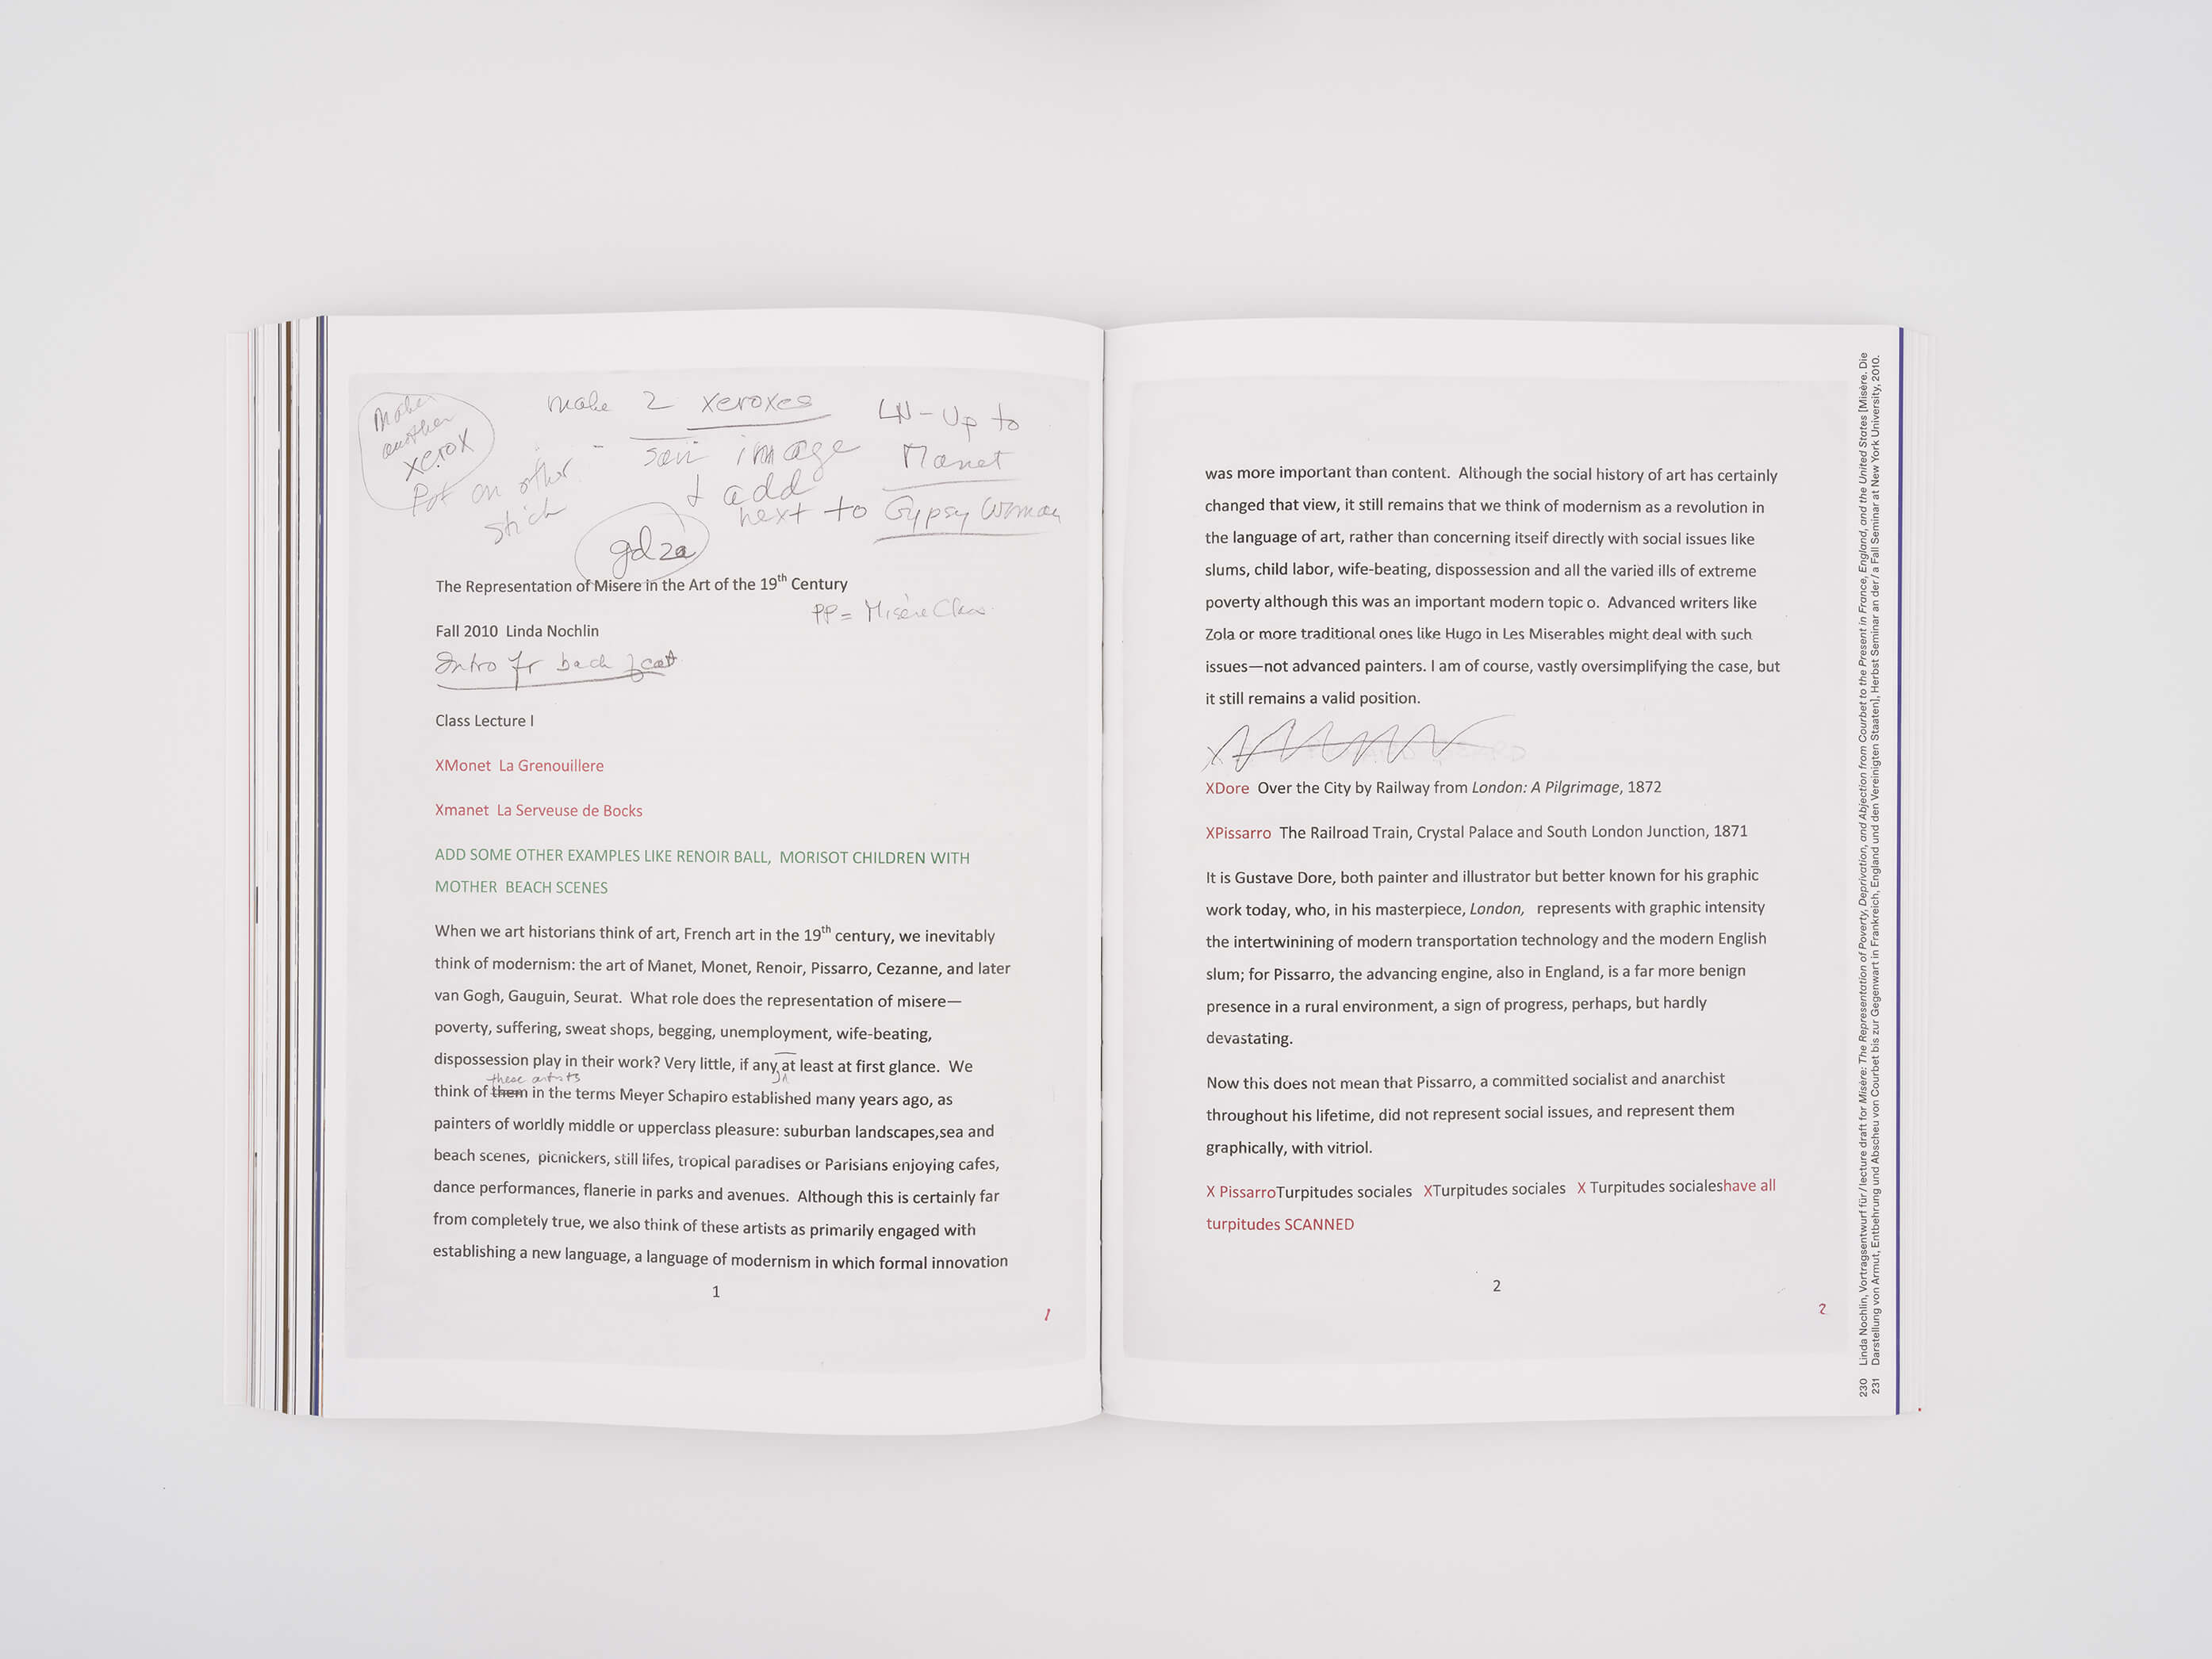 Make
another
xerox
Put on other
stick
make 2 xeroxes
image
& add
next to Gypsy Woman
LN-Up to
Manet
The Representation of Misere in the Art of the 19th Century
PP= Misère Class
Fall 2010  Linda Nochlin
Intro fr back of cat
Class Lecture I
XMonet  La Grenouillere
Xmanet  La Serveuse de Bocks
ADD SOME OTHER EXAMPLES LIKE RENOIR BALL,  MORISOT CHILDREN WITH
MOTHER  BEACH SCENES
When we art historians think of art, French art in the 19th century, we inevitably
think of modernism: the art of Manet, Monet, Renoir, Pissarro, Cezanne, and later
van Gogh, Gauguin, Seurat.  What role does the representation of misere—
poverty, suffering, sweat shops, begging, unemployment, wife-beating,
dispossession play in their work? Very little, if any, at least at first glance.  We
these artists
think of them in the terms Meyer Schapiro established many years ago, as
painters of worldly middle or upperclass pleasure: suburban landscapes,sea and
beach scenes,  picnickers, still lifes, tropical paradises or Parisians enjoying cafes,
dance performances, flanerie in parks and avenues.  Although this is certainly far
from completely true, we also think of these artists as primarily engaged with
establishing a new language, a language of modernism in which formal innovation
1
1
was more important than content.  Although the social history of art has certainly
changed that view, it still remains that we think of modernism as a revolution in
the language of art, rather than concerning itseif directly with social issues like
slums, child labor, wife-beating, dispossession and all the varied ills of extreme
poverty although this was an important modern topic o.  Advanced writers like
Zola or more traditional ones like Hugo in Les Miserables might deal with such
issues—not advanced painters. I am of course, vastly oversimplifying the case, but
it still remains a valid position.
XDore  Over the City by Railway from London: A Pilgrimage, 1872
XPissarro  The Railroad Train, Crystal Palace and South London Junction, 1871
It is Gustave Dore, both painter and illustrator but better known for his graphic
work today, who, in his masterpiece, London,   represents with graphic intensity
the intertwinining of modern transportation technology and the modern English
slum; for Pissarro, the advancing engine, also in England, is a far more benign
presence in a rural environment, a sign of progress, perhaps, but hardly
devastating.
Now this does not mean that Pissarro, a committed socialist and anarchist
throughout his lifetime, did not represent social issues, and represent them
graphically, with vitriol.
X PissarroTurpitudes sociales   XTurpitudes sociales   X Turpitudes socialeshave all
turpitudes SCANNED
2
2
230 Linda Nochlin, Vortragsentwurf für/lecture draft for Misère: The Representation of Poverty, Deprivation, and Abjection from Courbet to the Present in France, England, and the United States [Misère. Die
231 Darstellung von Armut, Entbehrung und Abscheu von Courbet bis zur Gegenwart in Frankreich, England und den Vereinigten Staaten], Herbst Seminar an der/a Fall Seminar at New York University, 2010.